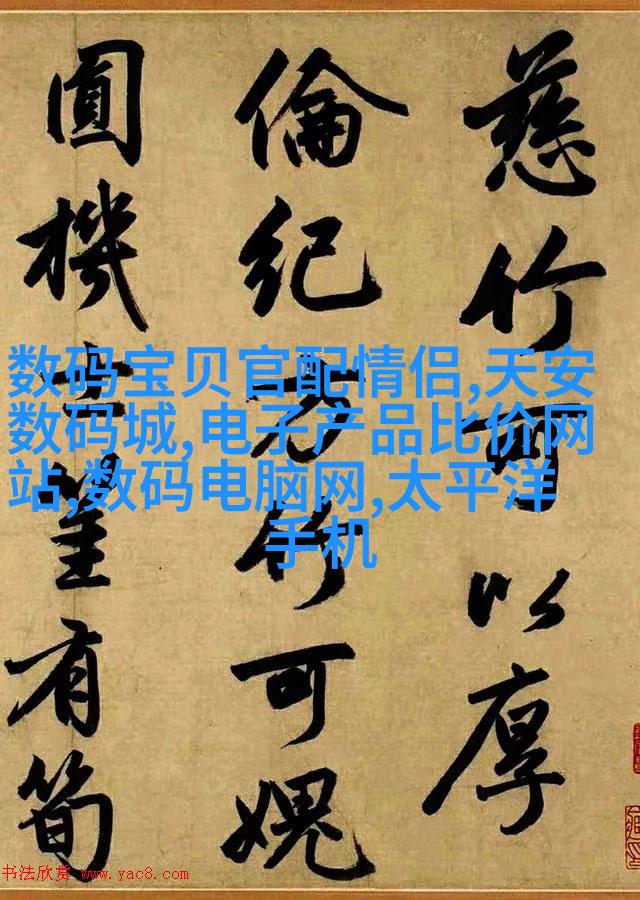 慈竹可以厚
倫紀方竹可愧
圓機士有筍
数码宝贝官配情侣,天安
数码城,电子产品比价网
站,数码电脑网,太平洋
手机
书法欣赏 www.yac8.com